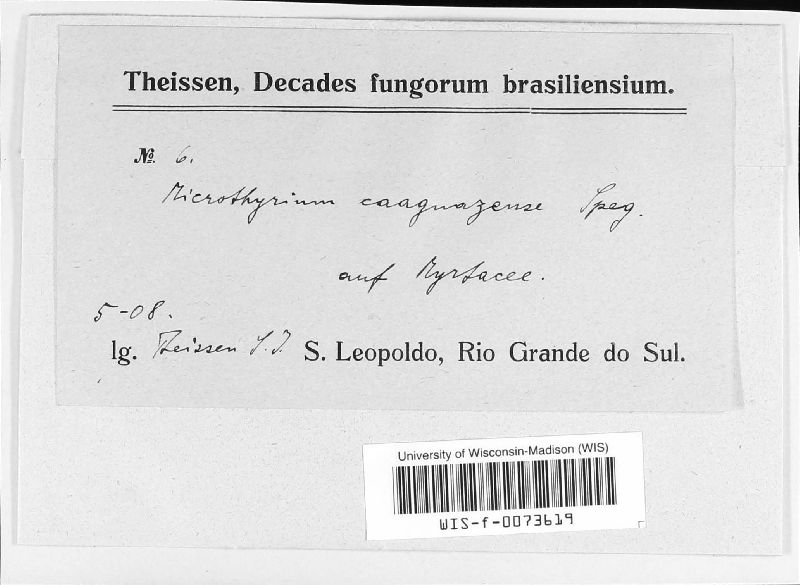 Theissen, Decades fungorum brasiliensium.
№ 6.
Microthyrium caaguazense Speg.
auf Myrtacee.
5-08.
lg. Theissen S.J. S. Leopoldo, Rio Grande do Sul.
University of Wisconsin-Madison (WIS)
WIS-f-0073619